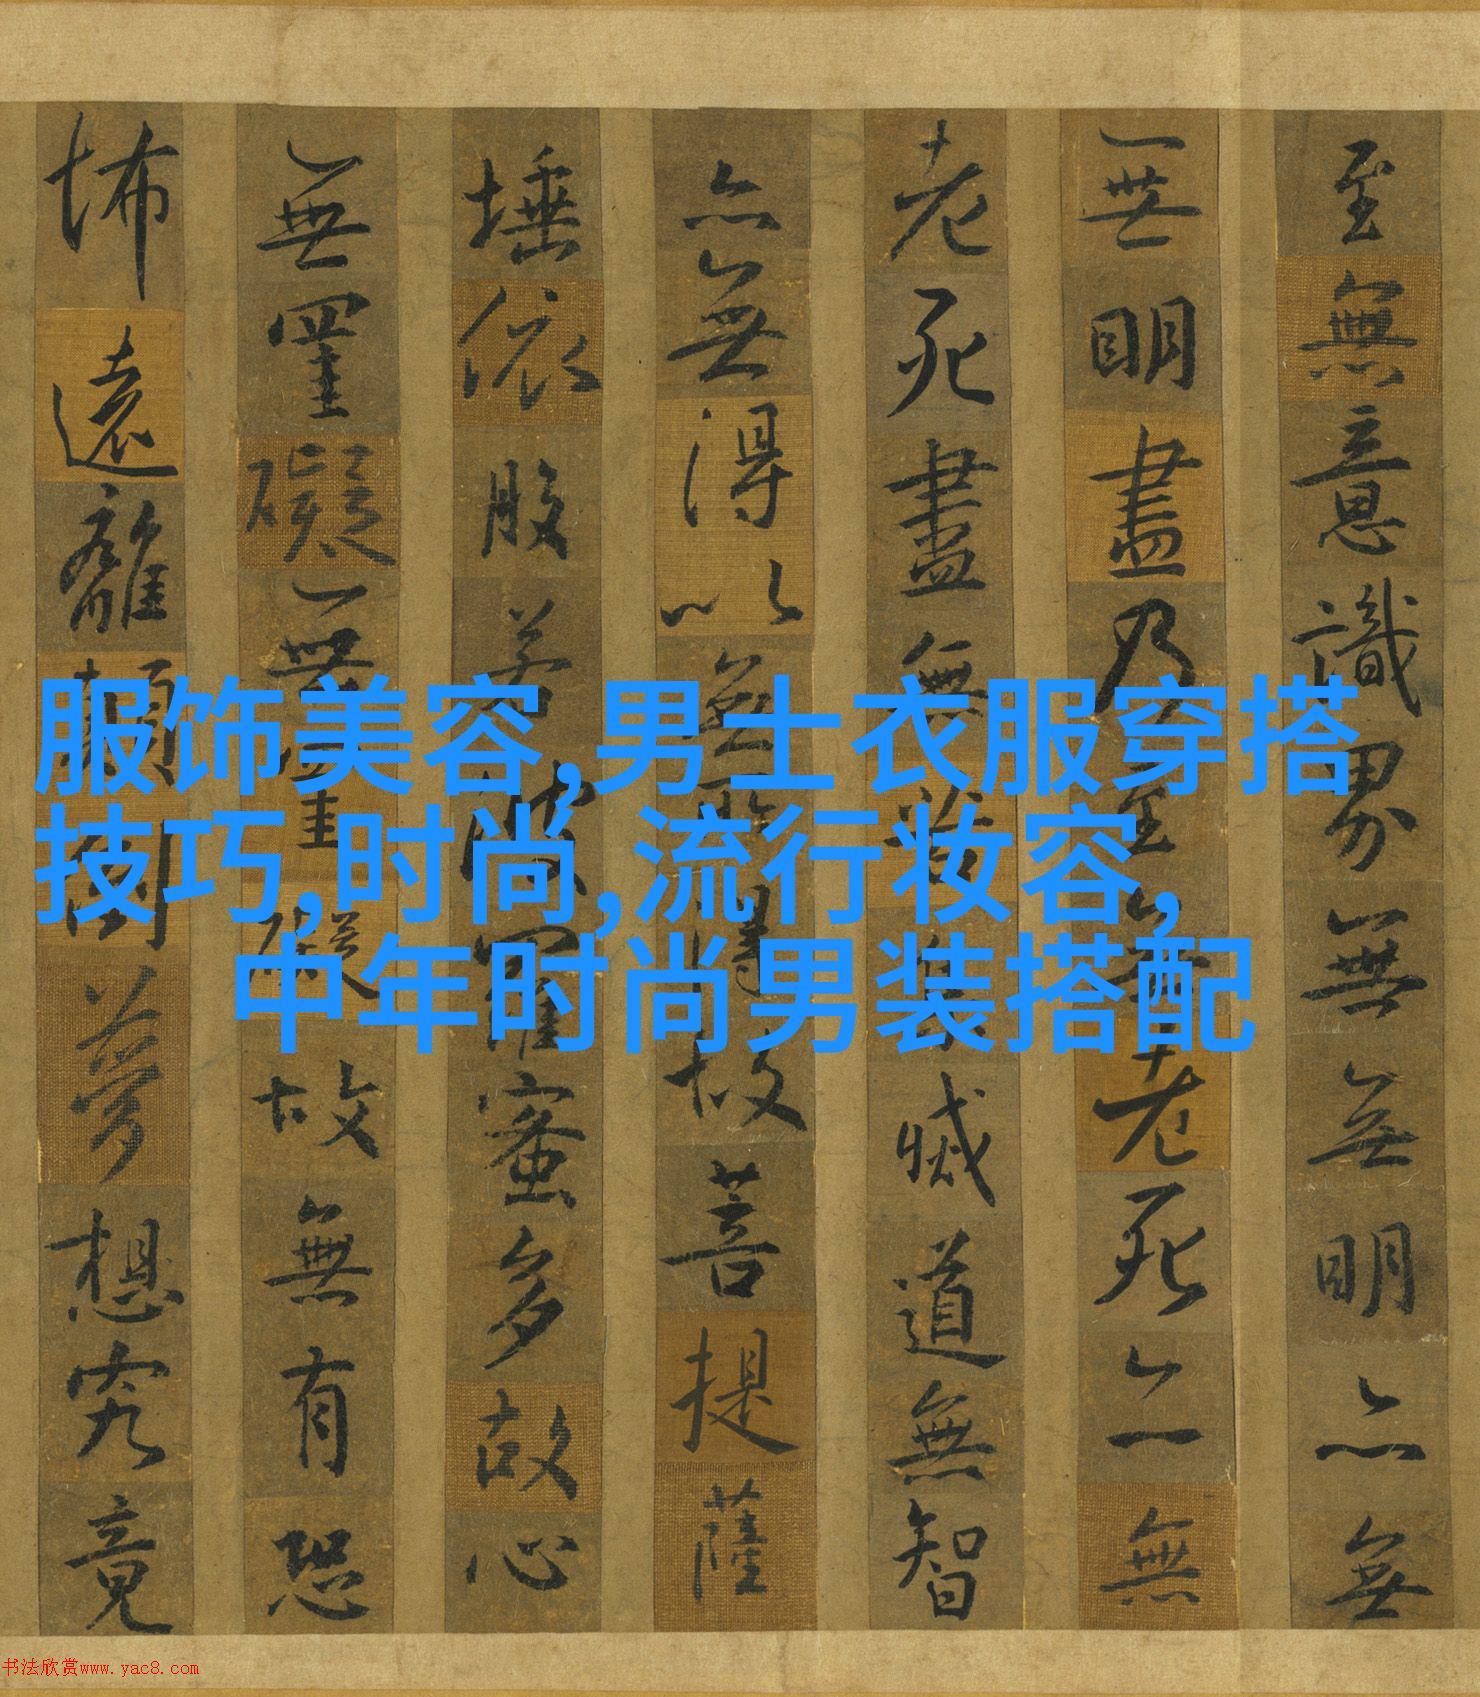 至無意識界無無明亦無
無明盡乃至無老死亦無
老死盡無苦集滅道無智
亦無得以無所得故菩提薩
埵依般若波羅蜜多故心
無罣礙無罣礙故無有恐
怖遠離顛倒夢想究竟
服饰美容,男士衣服穿搭
技巧,时尚,流行妆容,
中年时尚男装搭配
书法欣赏www.yac8.com